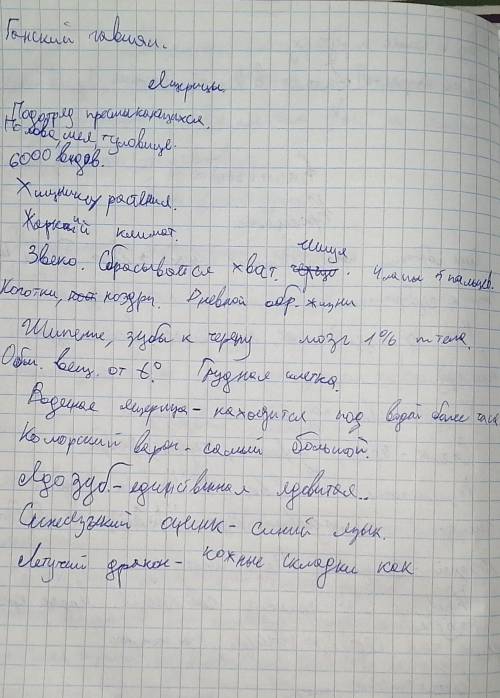 Ганский гавиал.
Ящерицы
Подотряд пресмыкающихся.
Голова, шея, туловище.
6000 видов.
Хищники, растения.
Жаркий климат.
Звено. Сбрасывается хвост. Чешуя. 4 лапы 5 пальцев.
Коготки, ноздри. Дневной обр. жизни
Шипение, зубы к черепу мозг 1% m тела.
Обм. вещ. от t°. Грудная клетка.
Водяная ящерица - находится под водой более часа
Коморский варан - самый большой.
Ядозуб. - единственная ядовитая..
Синеязыкий сцинк - синий язык.
Летучий дракон - кожные складки как